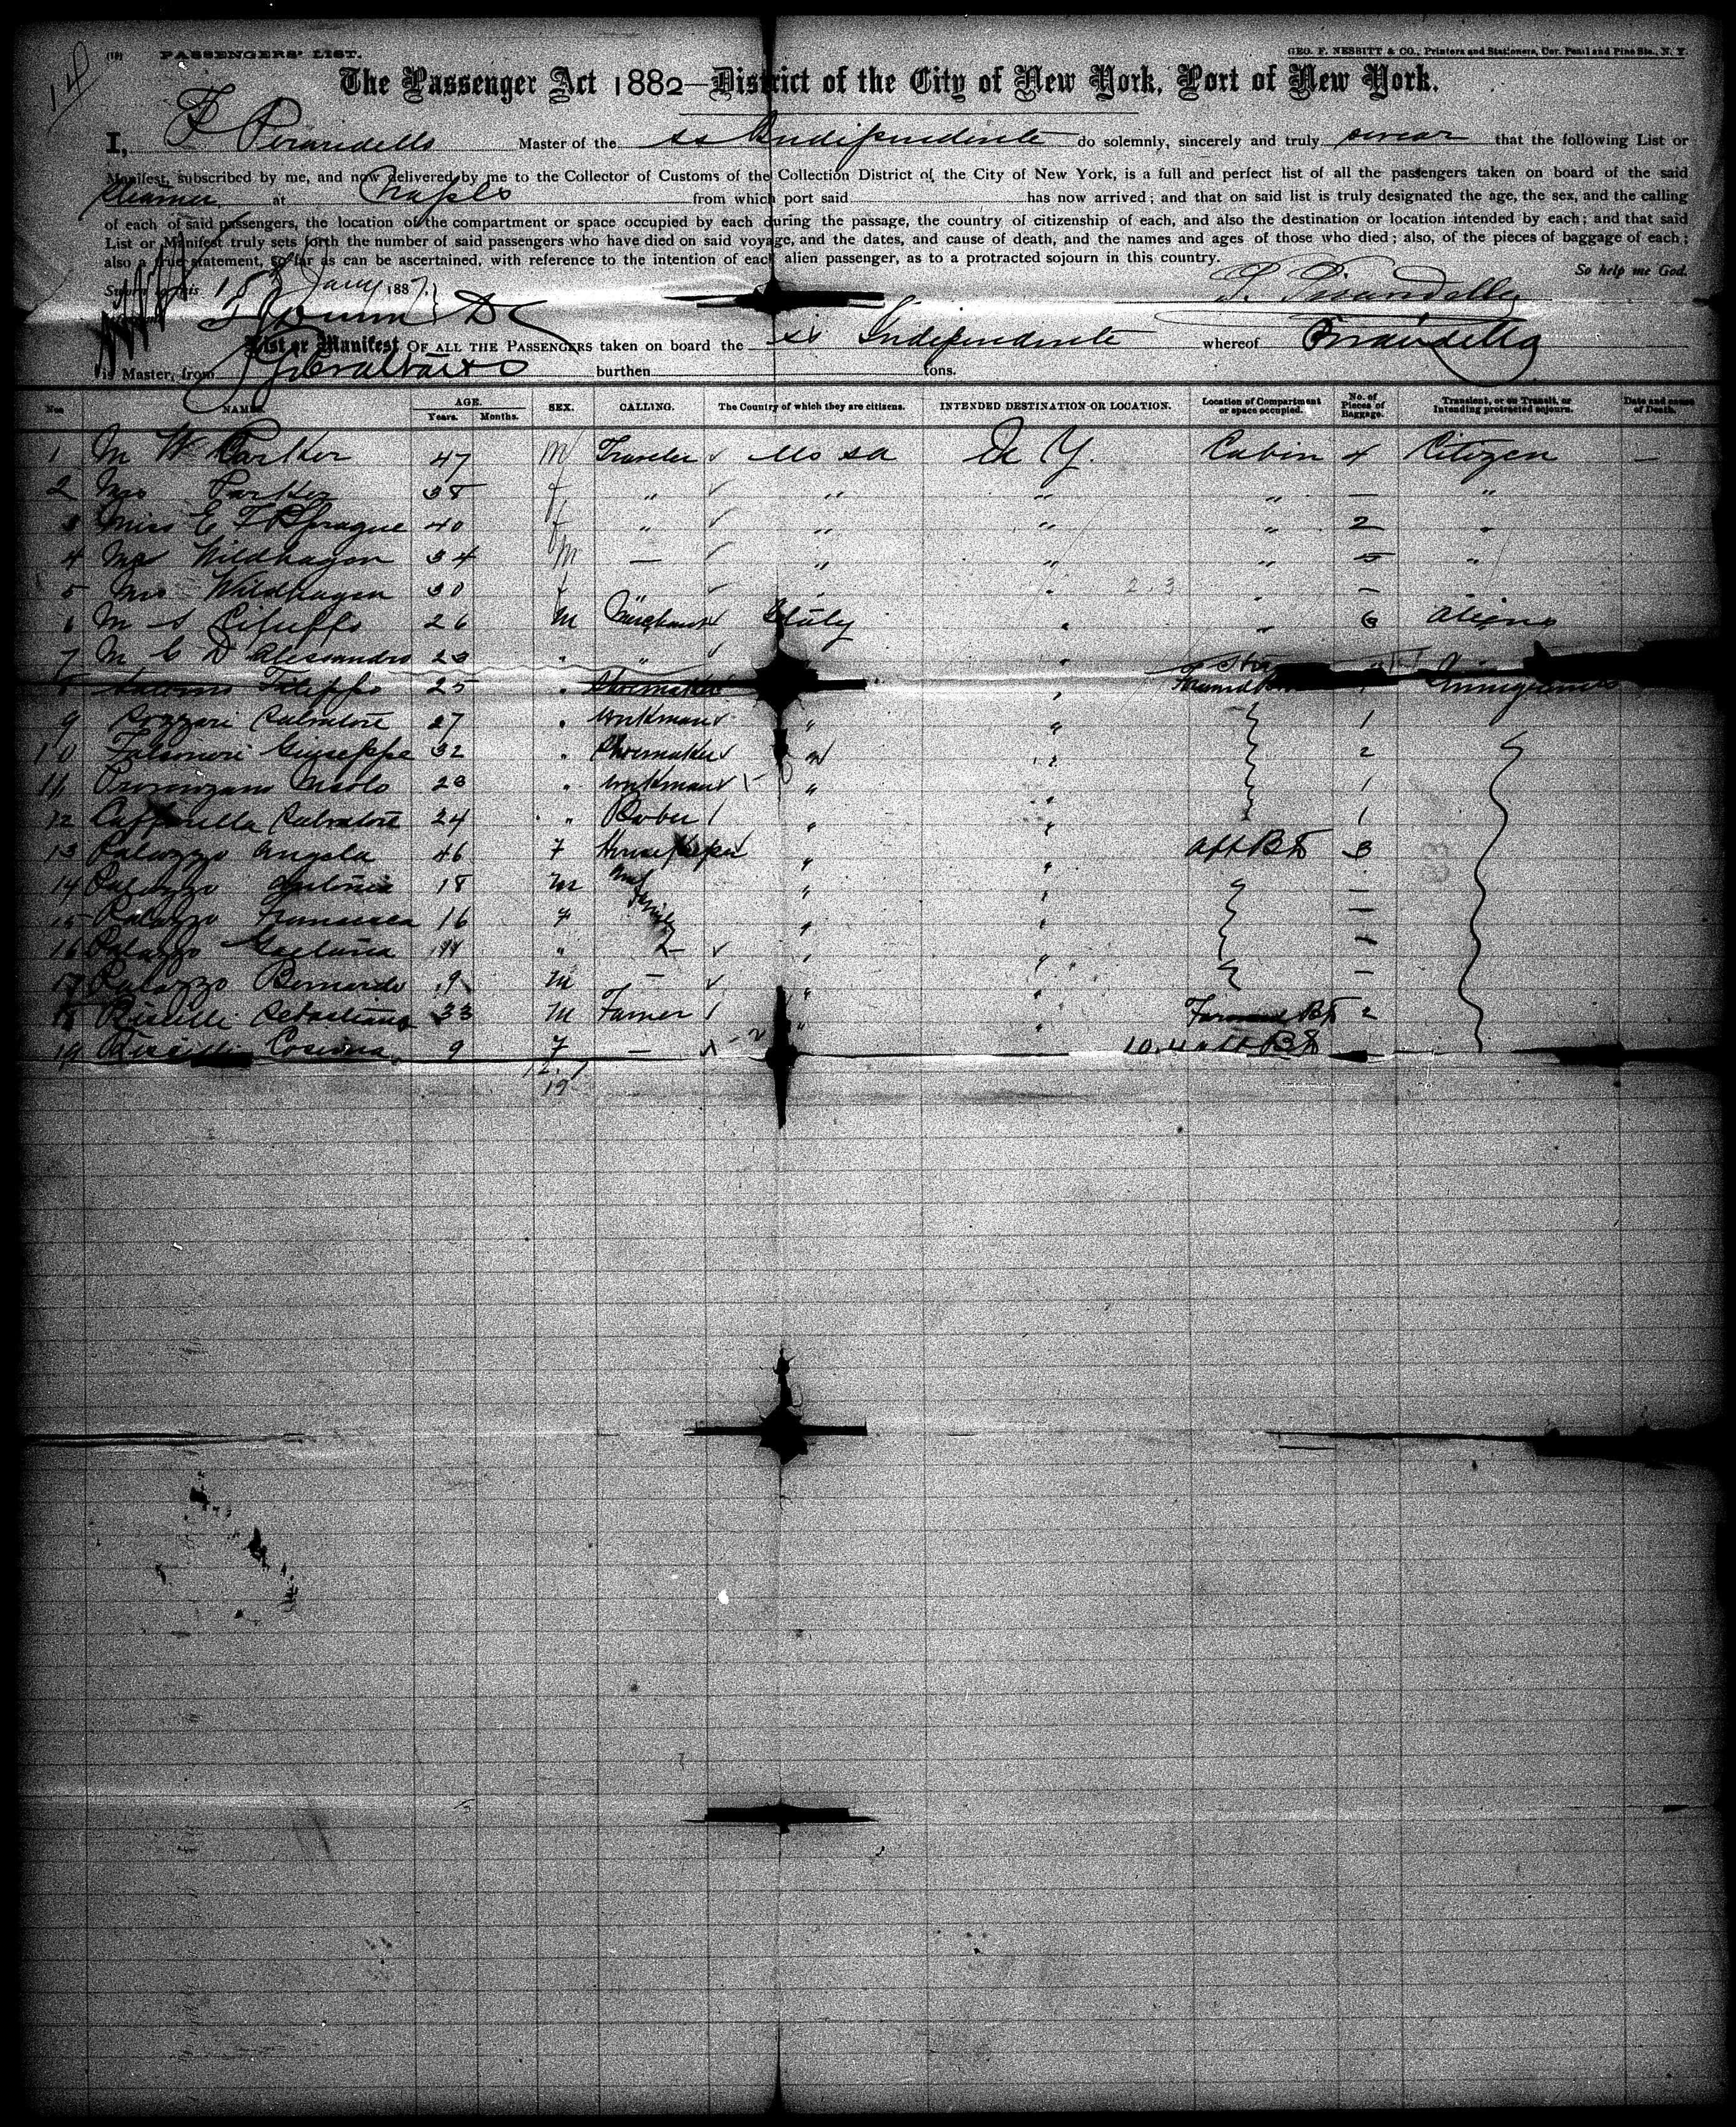 14
(10) PASSENGERS' LIST.
GEO. F. NESBITT & CO., Printers and Stationers, Cor. Pearl and Pine Sts., N. Y.
The Passenger Act 1882—District of the City of New York, Port of New York.
I, F Pirandello Master of the ss Independente do solemnly, sincerely and truly swear that the following List or
Manifest, subscribed by me, and now delivered by me to the Collector of Customs of the Collection District of the City of New York, is a full and perfect list of all the passengers taken on board of the said
Steamer at Naples from which port said has now arrived; and that on said list is truly designated the age, the sex, and the calling
of each of said passengers, the location of the compartment or space occupied by each during the passage, the country of citizenship of each, and also the destination or location intended by each; and that said
List or Manifest truly sets forth the number of said passengers who have died on said voyage, and the dates, and cause of death, and the names and ages of those who died; also, of the pieces of baggage of each;
also a true statement, so far as can be ascertained, with reference to the intention of each alien passenger, as to a protracted sojourn in this country.
So help me God.
Sworn to this 18 Jany 1887.
Pirandello
List or Manifest OF ALL THE PASSENGERS taken on board the ss Independente whereof Pirandello
is Master, from Gibraltar burthen tons.
Nos NAMES. AGE. Years. Months. SEX. CALLING. The Country of which they are citizens. INTENDED DESTINATION OR LOCATION. Location of Compartment or space occupied. No. of Pieces of Baggage. Transient, or in Transit, or Intending protracted sojourn. Date and cause of Death.
1 M W Parker 47 M Traveler N Y. Cabin 4 Citizen —
2 Mrs Parker 38 f " " " " — "
3 Miss E F Sprague 40 f " " " " 2 "
4 Mr Wildhagen 34 M — " " " 5 "
5 Mrs Wildhagen 30 f " " —
6 M S 26 M Merchant Italy " " 6 Aliens
7 M C D Alessandro 23 " " "
8 Filippo 25 " Shoemaker " 1 Immigrants
9 Salvatore 27 " Workman " " 1
10 Giuseppe 32 " Shoemaker " " 2
11 23 " Workman " " 1
12 Salvatore 24 " Barber " " 1
13 Palazzo Angela 46 F Housekeeper " " Aft B D 3
14 Palazzo Antonio 18 M " " —
15 Palazzo Francesca 16 F " " —
16 Palazzo Gaetana 11 " — " " —
17 Palazzo Bernardo 9 M — " " —
18 Sebastiano 33 M Farmer " " Forward 2
19 Cosima 9 F —
12.7
19